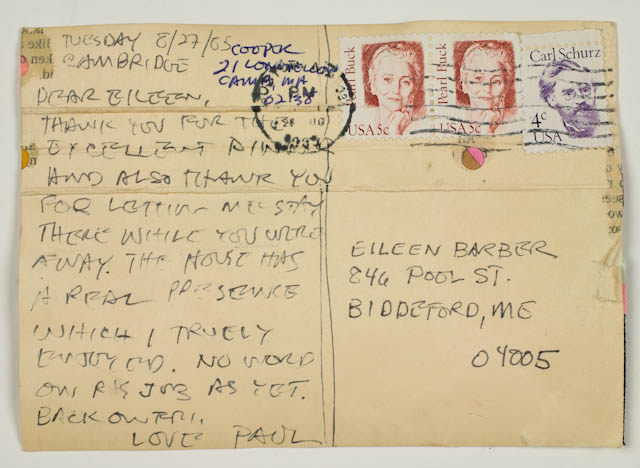 TUESDAY 8/27/85
CAMBRIDGE
COOPER
21
CAMB, MA
02138
DEAR EILEEN,
THANK YOU FOR THE
EXCELLENT DINNER
AND ALSO THANK YOU
FOR LETTING ME STAY
THERE WHILE YOU WERE
AWAY. THE HOUSE HAS
A REAL PRESENCE
WHICH I TRUELY
ENJOYED. NO WORD
ON R'S JOB AS YET.
BACK
LOVE PAUL
Pearl Buck
USA 5c
Pearl Buck
USA 5c
Carl Schurz
4c
USA
PM
EILEEN BARBER
846 POOL ST.
BIDDEFORD, ME
04005